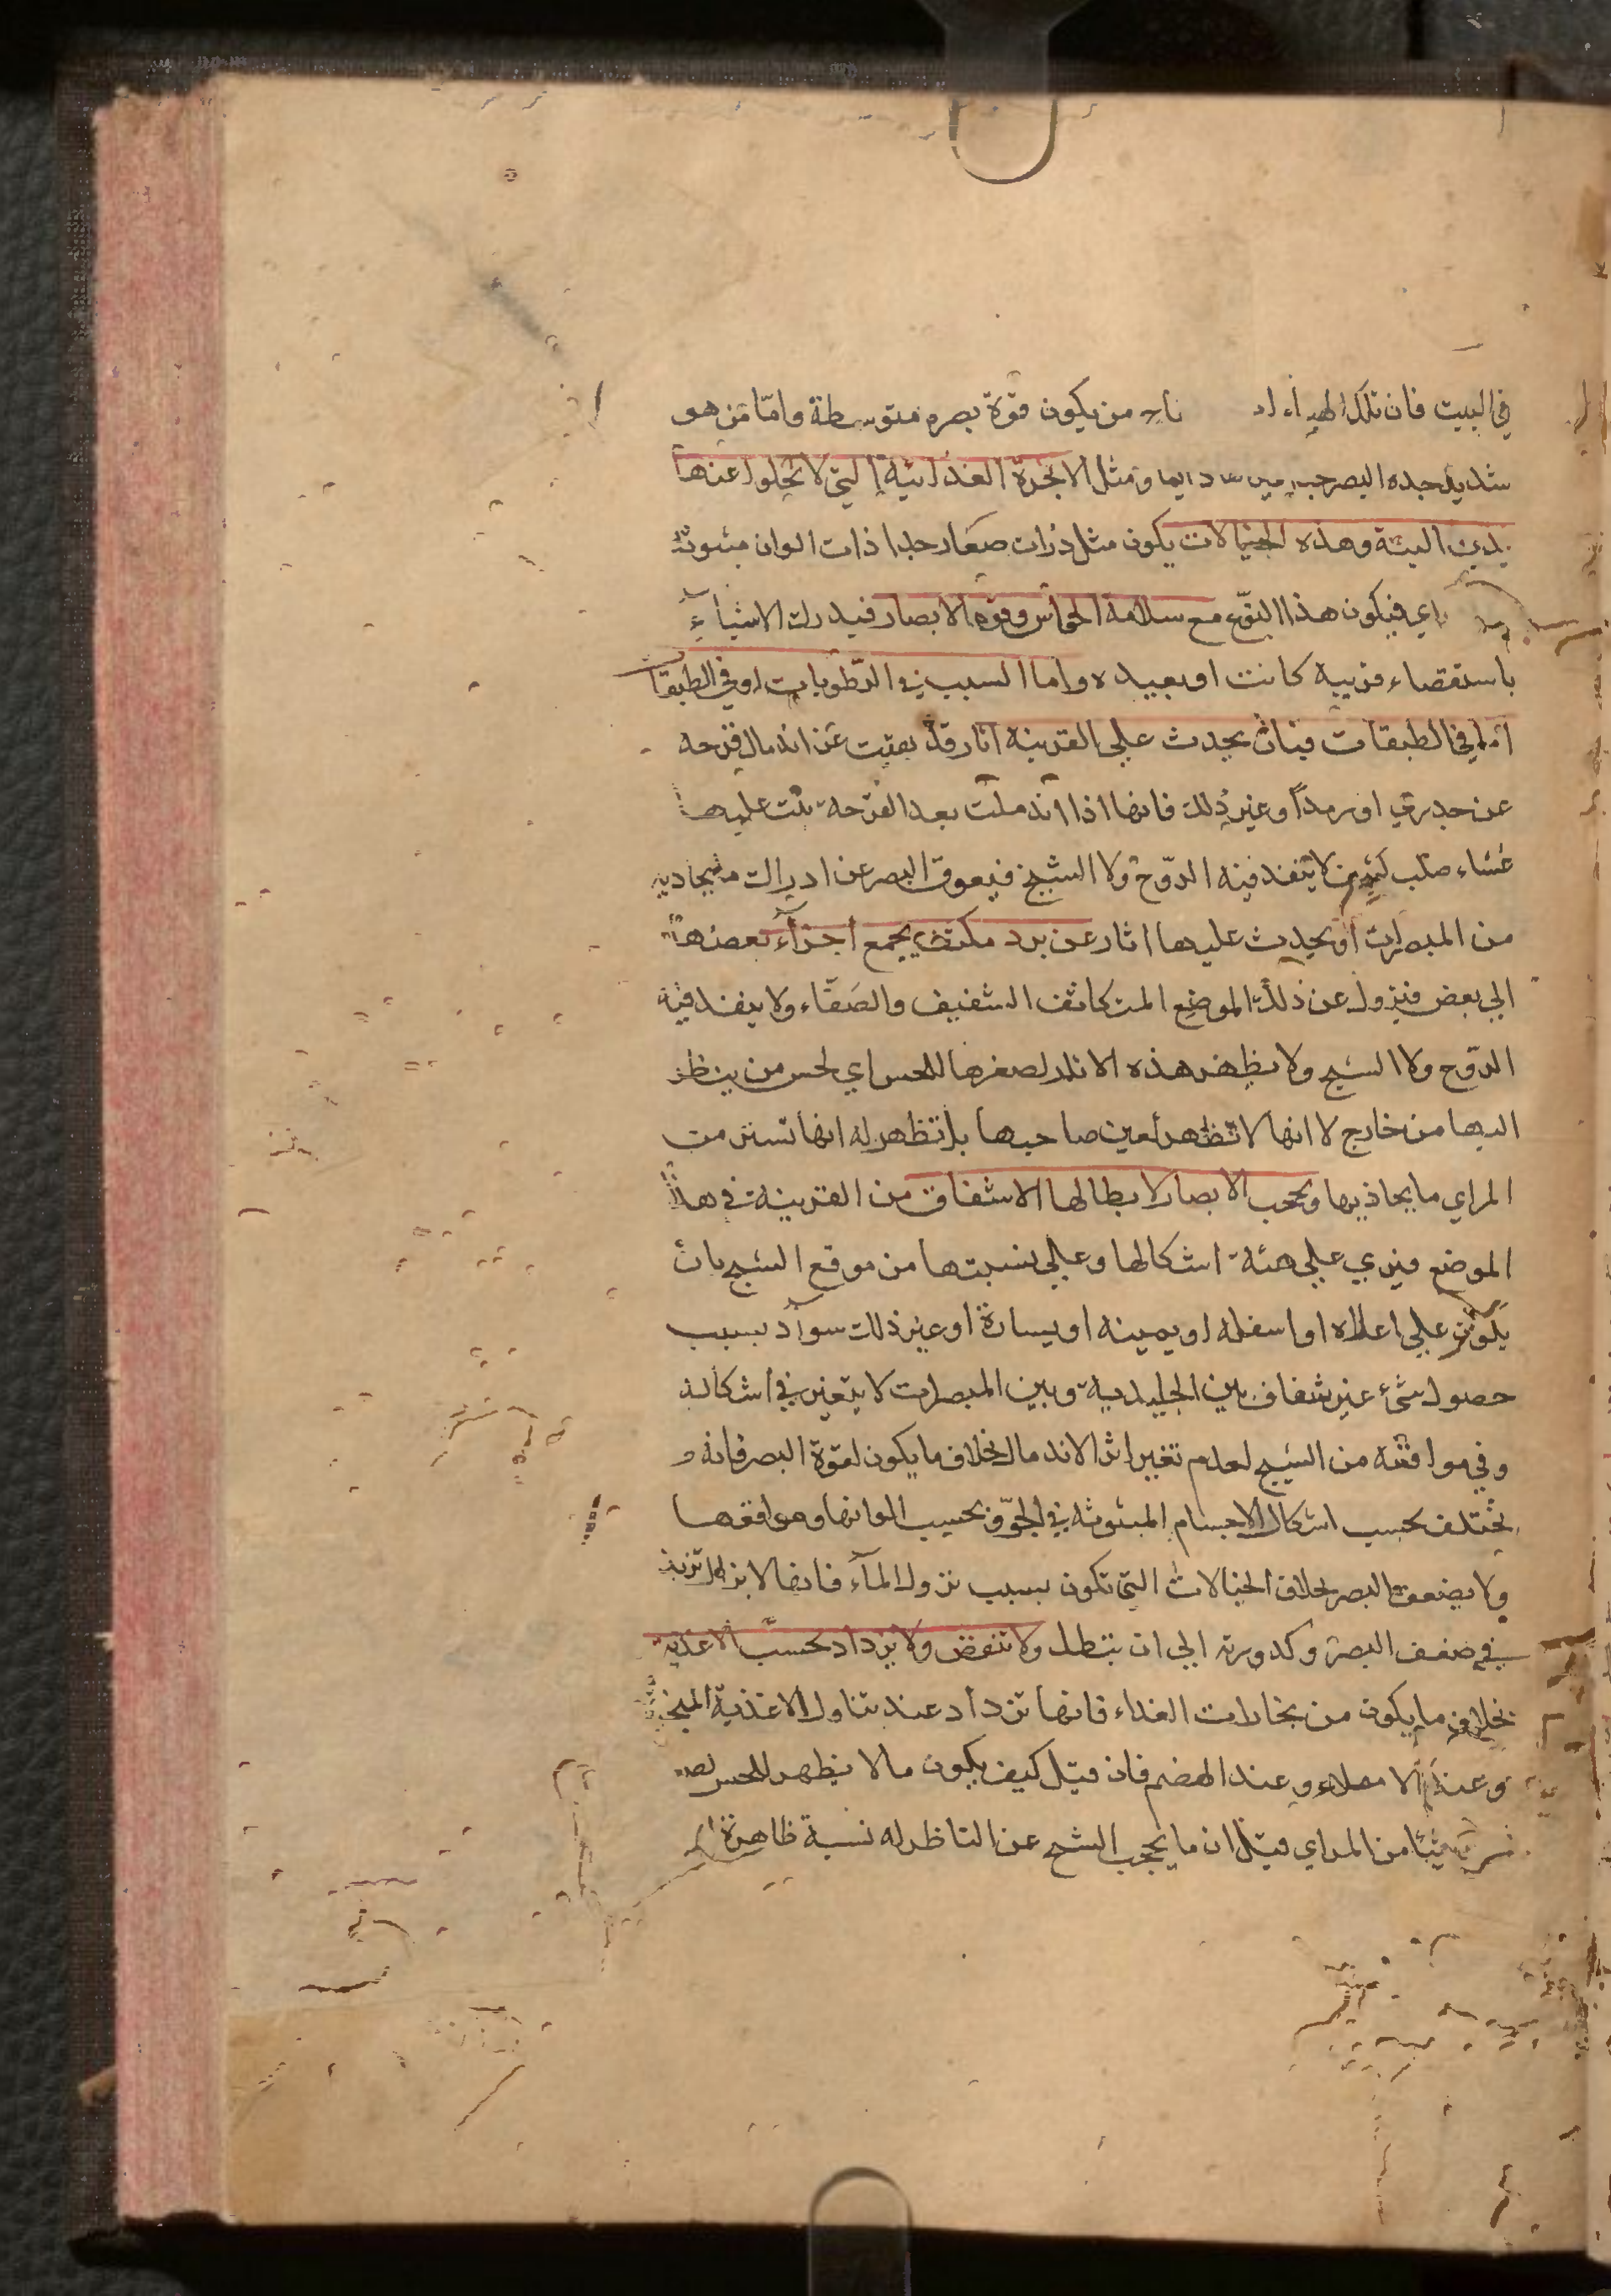 في البيت فان تلك الهباءات من يكون قوة بصره متوسطة واما من هو
شديد حده البصر دايما ومثل الابخرة الغذائية التي لا تخلوا عنها
بدن البتة وهذه الخيالات يكون مثل ذرات صغار جدا ذات الوان مبثوثة
فيكون هذا النوع مع سلامة الحواس وقوة الابصار فيدرك الاشياء
باستقصاء قريبه كانت او بعيده واما السبب في الرطوبات او في الطبقات
اما في الطبقات فبان يحدث علي القرنية اثار قد بقيت عن اندمال قرحه
عن جدري او رمد او غير ذلك فانها اذا اندملت بعد القرحة نبت عليها
غشاء صلب لا ينفذ فيه الروح ولا الشبح فيعوق البصر عن ادراك ما يحاذيه
من المبصرات او يحدث عليها اثار عن برد مكثف يجمع اجزاء بعضها
الي بعض فيزول عن ذلك الموضع المتكاثف الشفيف والصفاء ولا ينفذ فيه
الروح ولا الشبح ولا يظهر هذه الاثار لصغرها للحس اي لحس من ينظر
اليها من خارج لا انها لا تظهر لعين صاحبها بل تظهر له انها تستر من
المراي ما يحاذيها ويحجب الابصار لابطالها الاشفاف من القرنية في هذا
الموضع فيري علي هيئة اشكالها وعلي نسبتها من موقع الشبح بان
يكون علي اعلاه او اسفله او يمينه او يساره او غير ذلك سواد بسبب
حصول شئ غير شفاف بين الجليدية وبين المبصرات لا يتغير في اشكاله
وفي موافقته من الشبح لعدم تغير اثر الاندمال بخلاف ما يكون لقوة البصر فانه و
يختلف بحسب اشكال الاجسام المبثوثة في الجو وبحسب الوانها ومواقعها
ولا يضعف البصر بخلاف الخيالات التي تكون بسبب نزول الماء فانها لا تزال تزيد
في ضعف البصر وكدورته الي ان يبطل ولا تنقص ولا يزداد بحسب الاغذية
بخلاف ما يكون من بخارات الغذاء فانها تزداد عند تناول الاغذية المبخرة
وعند الامتلاء وعند الهضم فان قيل كيف يكون ما لا يظهر للحس
شيئا من المراي قيل ان ما يحجب الشبح عن الناظر له نسبة ظاهرة